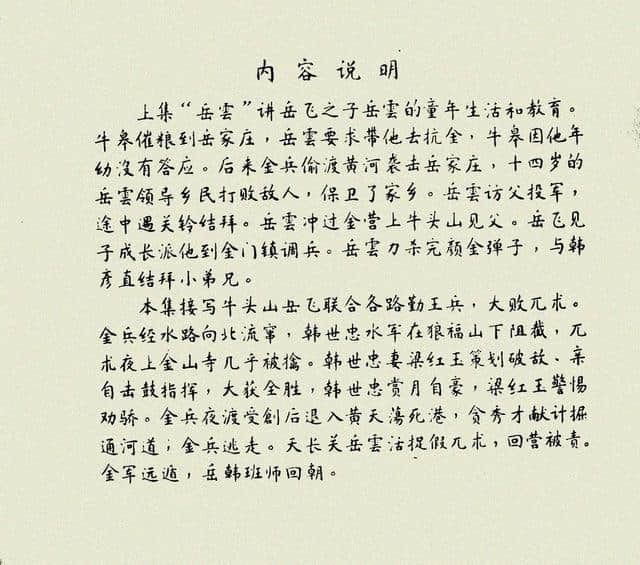 内容说明
上集“岳雲”讲岳飞之子岳雲的童年生活和教育。
牛皋催粮到岳家庄，岳雲要求带他去抗金，牛皋因他年
幼沒有答应。后来金兵偷渡黄河袭击岳家庄，十四岁的
岳雲领导乡民打败敌人，保卫了家乡。岳雲访父投军，
途中遇关铃结拜。岳雲冲过金营上牛头山见父。岳飞见
子成长派他到金门镇调兵。岳雲力杀完颜金弹子，与韩
彦直结拜小弟兄。
本集接写牛头山岳飞联合各路勤王兵，大败兀术。
金兵经水路向北流窜，韩世忠水军在狼福山下阻截，兀
术夜上金山寺几乎被擒。韩世忠妻梁红玉策划破敌、亲
自击鼓指挥，大获全胜，韩世忠赏月自豪，梁红玉警惕
劝骄。金兵夜渡受創后退入黄天蕩死港，贪秀才献计掘
通河道；金兵逃走。天长关岳雲活捉假兀术，回营被责。
金军远遁，岳韩班师回朝。